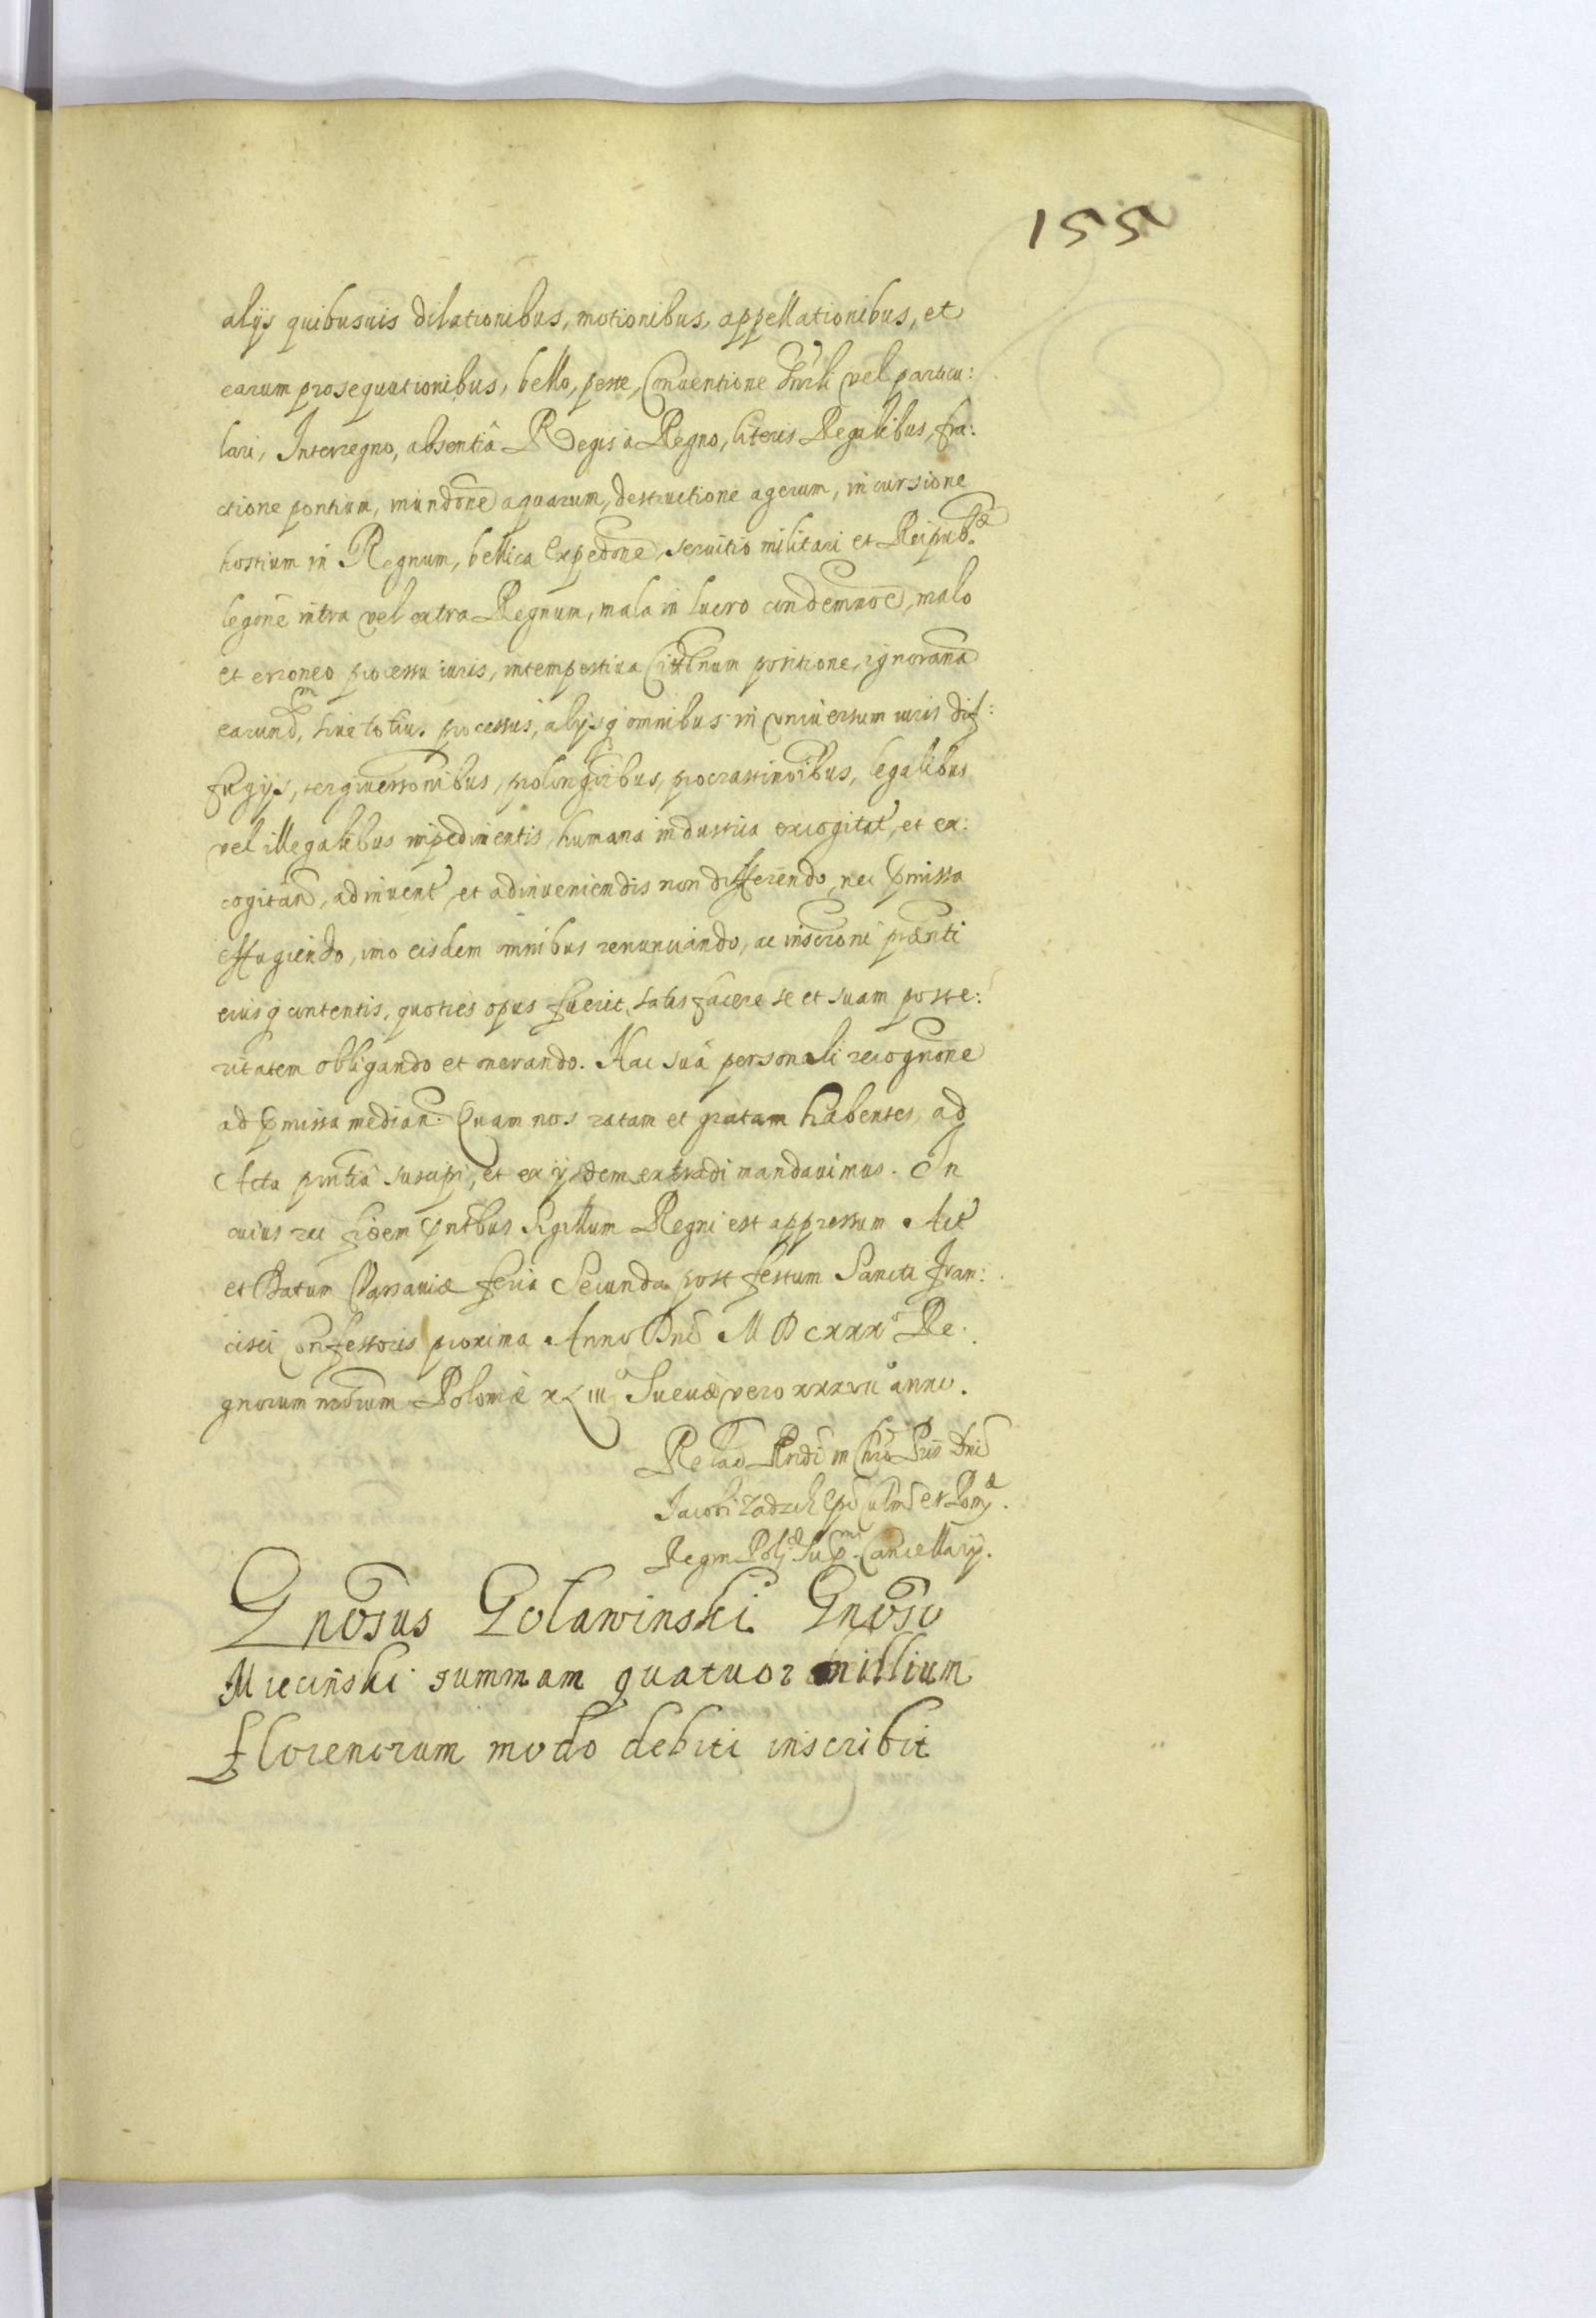 155
alijs quibusuis dilationibus, motionibus, appellationibus, et
earum prosequutionibus, bello, peste, Conuentione Gnrli vel particu:
lari, Interregno, absentiâ Regis à Regno, literis Regalibus, fra:
ctione pontium, inundone aquarum, destructione agerum, incursione
hostium in Regnum, bellica Expedone, seruitio militari et Reipub.æ
legone intra vel extra Regnum, mala in lucro condemnoe, malo
et erroneo processu iuris, intempestiua Cittonum positione, ignorantia
earundm, siue totius processus, alijsq omnibus in vniuersum iuris dif:
fugijs, tergiuersonibus, prolongoibus, procrastinoibus, legalibus
vel illegalibus impedimentis, humana industria excogitat, et ex:
cogitand, adinuent, et adinueniendis non differendo, nec pmissa
effugiendo, imo eisdem omnibus renunciando, ac inscroni pnti
eiusq contentis, quoties opus fuerit, satisfacere se et suam poste:
ritatem obligando et onerando. Hac suâ personali recognone
ad pmissa median. Quam nos ratam et gratam habentes, ad
Acta pntia suscipi, et ex ijsdem extradi mandauimus. In
cuius rei fidem pntibus Sigillum Regni est appressum. Act
et Datum Varsauiæ feria Secunda post festum Sancti Fran:
cisci Confessoris proxima Anno Dni MDCXXXo Re:
gnorum nrorum Poloniæ XLIIIo Sueuæ vero XXXVIIo anno.
Relao Rndi in Chro Pris Dni
Jacobi Zadzik Epi Culmen et Pomæ.
Regni Polæ Sup.mi Cancellarij.
Gnosus Golawinski Gnoso
Miecinski summam quatuor millium
florenorum modo debiti inscribit